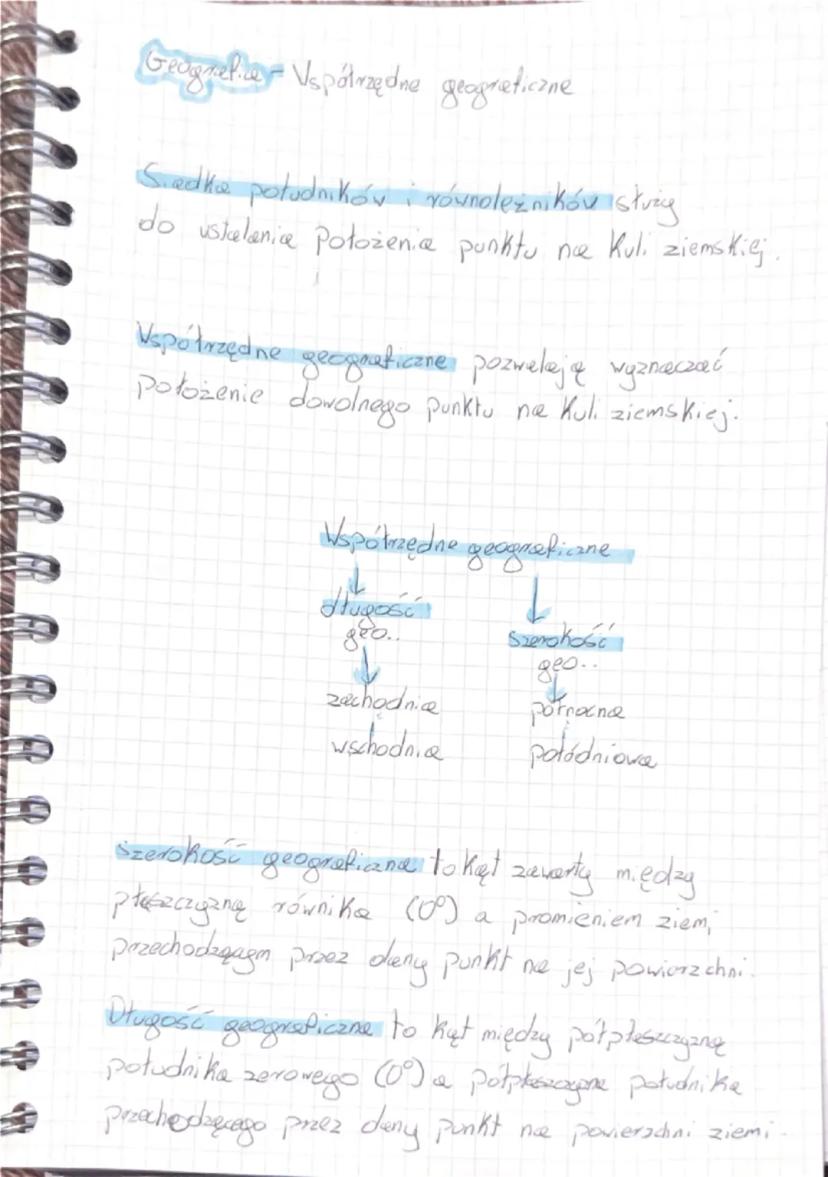 Geografia - Współrzędne geograficzne
Siadka południków i równoleżników służy
do ustalania położenia punktu na Kuli ziemskiej.
Współrzędne geograficzne pozwalają wyznaczać
położenie dowolnego punktu na Kuli ziemskiej.
Współrzędne geograficzne
długość szerokość
geo.. geo..
zachodnia północna
wschodnia połódniowa
szerokość geograficzna to kąt zawarty między
płaszczyzną równika (0°) a promieniem ziemi
przechodzącym przez dany punkt na jej powierzchni.
Długość geograficzna to kąt między półpłaszczyzną
południka zerowego (0°) a półpłaszczyzną południka
przechodzącego przez dany punkt na powierzchni ziemi.